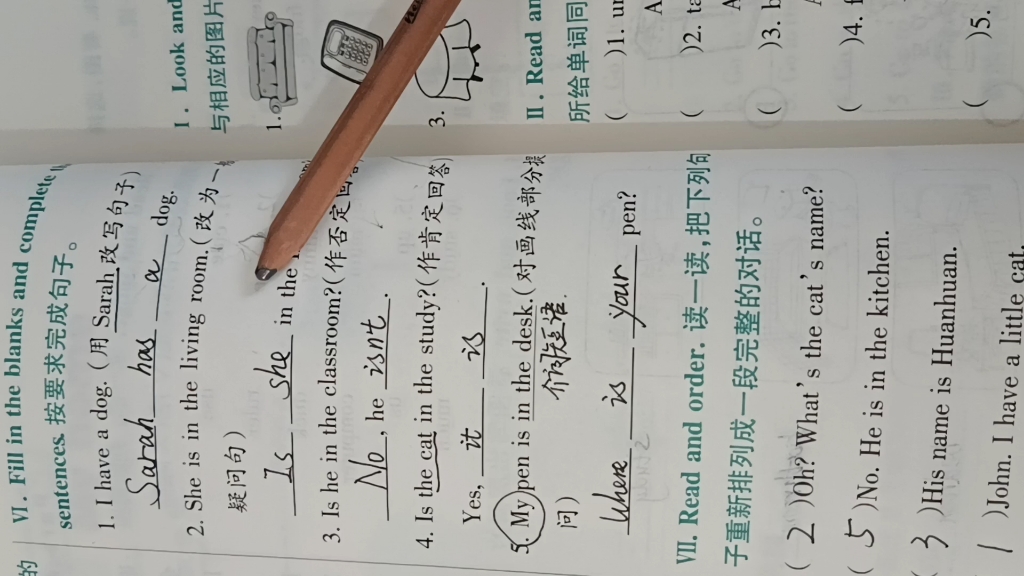 的
VI. Fill in the blanks and complete
sentences. 按要求完成句子。
1. I have a dog. (用 Sarah 改写句子)
Sarah has a dog.
2. She is in the living room. (改为一
疑问句)
Is she in the
3. Is he in the classroom? (作否定回答
No, he isnt.
4. Is the cat in the study? (作肯定回答)
Yes, it is.
5. My pen is in the desk. (对画线部分提
介词短语.
问)
Where is your pen?
VII. Read and order. 读一读,把下列句
子重新排列成一段完整的对话。
( 2 )Oh? What's the cat's name?
( 5 )No. He is in the kitchen.
( 3 )His name is Huanhuan.
1 )John. I have a little cat.
I. Look and
与相应的图片
1.
3.
II. Read an
所给单词同
( )1. u
A
( )2. ta
A
( )3. b
( )4. f
( )5.